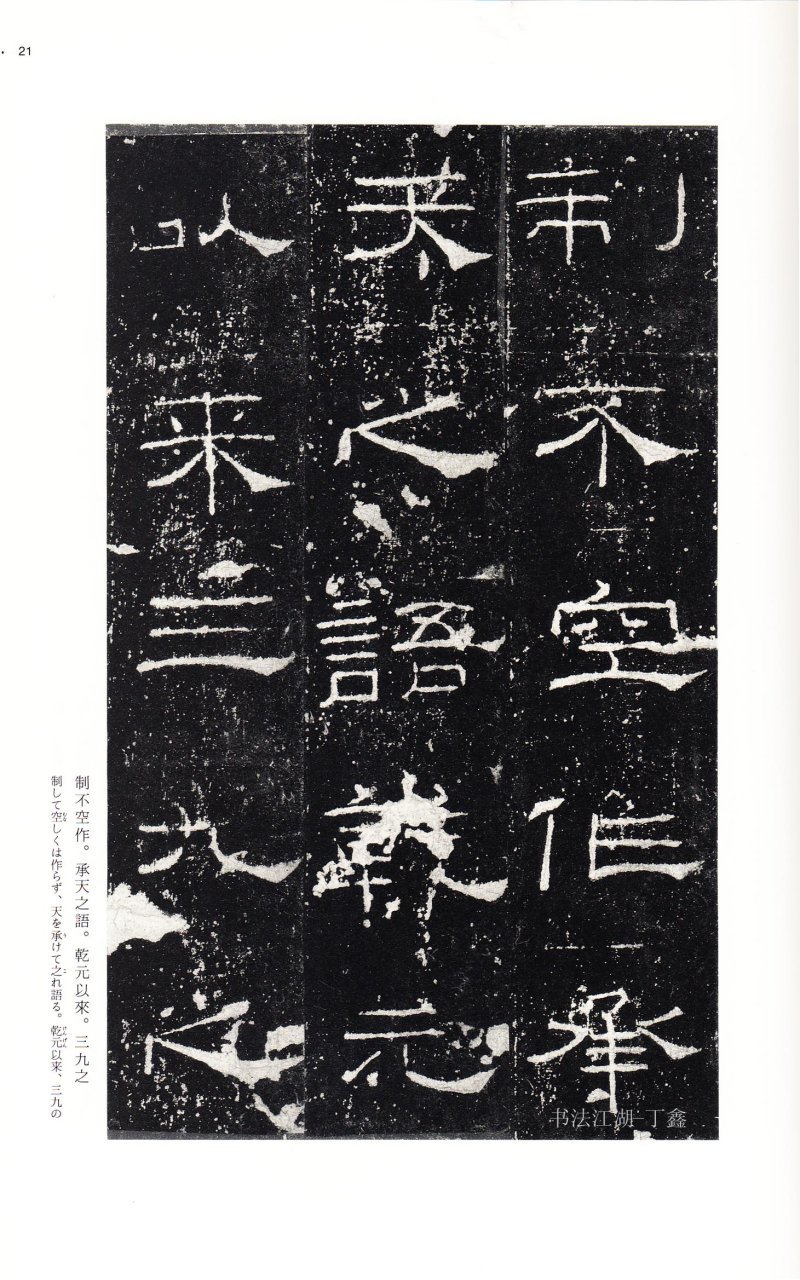 21
制不空作承
天之語乾元
以来三九之
制不空作。承天之語。乾元以來。三九之
制して空しくは作らず、天を承けて之れ語る。乾元以来、三九の
书法江湖-丁鑫